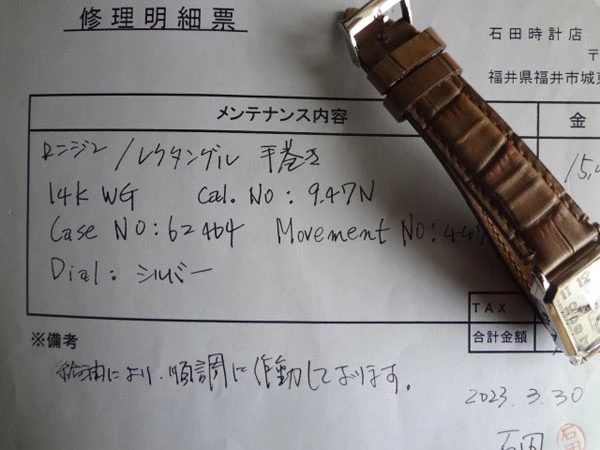 修理明細票
石田時計店
〒
福井県福井市城東
メンテナンス内容
金
ロンジン/レクタングル 手巻き
15,4
14K WG Cal. No: 9.47N
Case NO: 62464 Movement No: 447
Dial: シルバー
TAX
合計金額
※備考
給油により、順調に作動しております。
2023. 3. 30
石田
石田